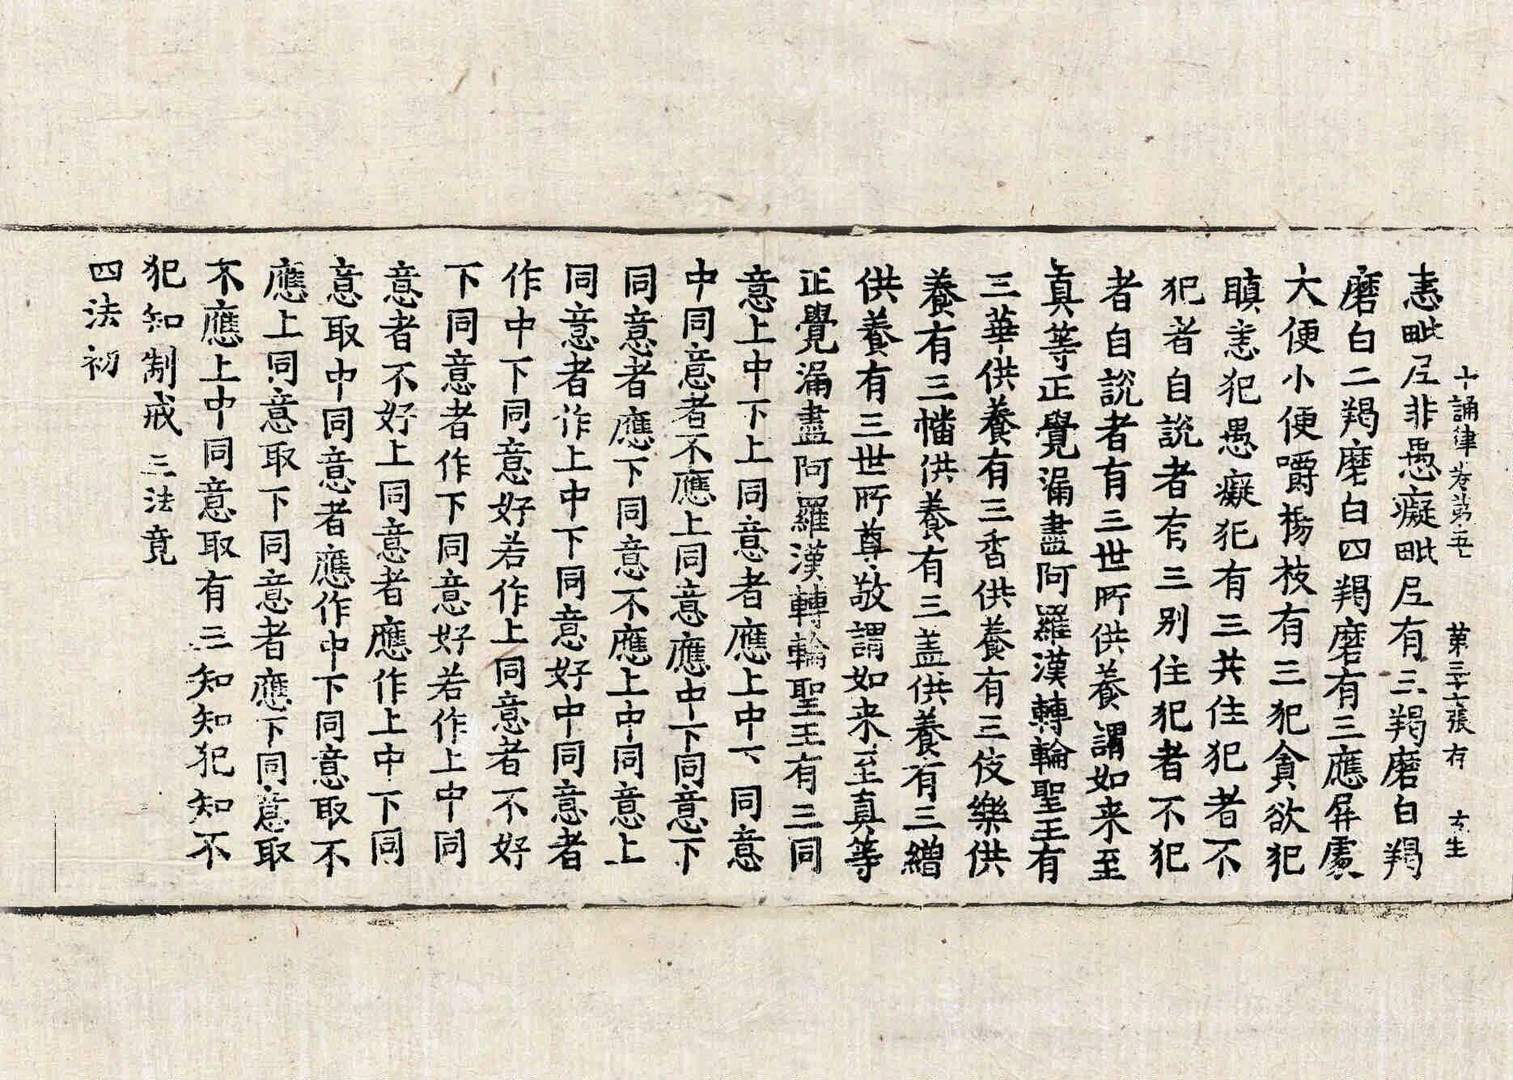 恚毗尼非愚癡毗尼有三羯磨白羯
十誦律卷第五 第三十六張 存 玄生
磨白二羯磨白四羯磨有三應屏處
大便小便嚼楊枝有三犯貪欲犯
瞋恚犯愚癡犯有三共住犯者不
犯者自說者有三別住犯者不犯
者自說者有三世所供養謂如来至
真等正覺漏盡阿羅漢轉輪聖王有
三華供養有三香供養有三伎樂供
養有三幡供養有三盖供養有三繒
供養有三世所尊敬謂如来至真等
正覺漏盡阿羅漢轉輪聖王有三同
意上中下上同意者應上中下同意
中同意者不應上同意應中下同意下
同意者應下同意不應上中同意上
同意者作上中下同意好中同意者
作中下同意好若作上同意者不好
下同意者作下同意好若作上中同
意者不好上同意者應作上中下同
意取中同意者應作中下同意取不
應上同意取下同意者應下同意取
不應上中同意取有三知知犯知不
犯知制戒 三法竟
四法初